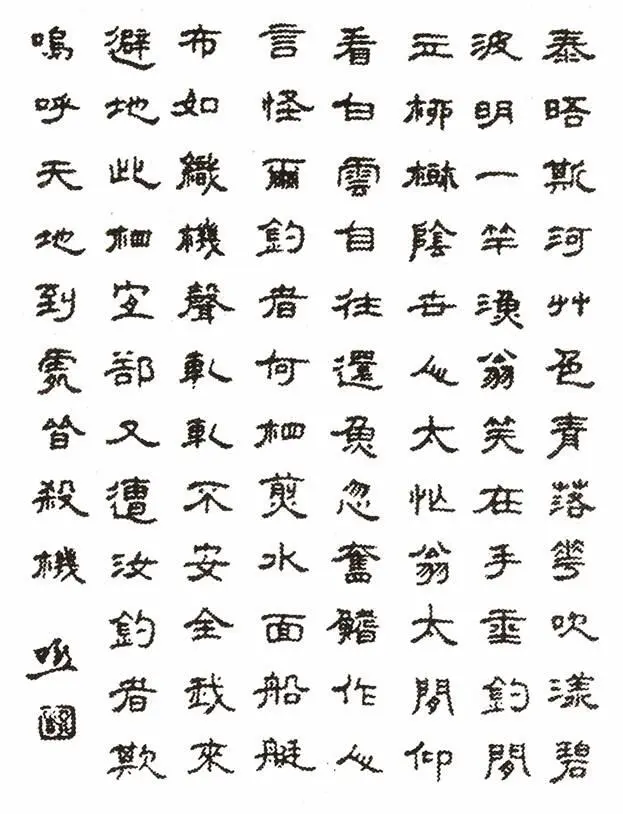 泰晤斯河艸色青落華吹漾碧
波明一竿漁翁笑在手垂釣閒
立柳楙陰世人太忙翁太閒仰
看白雲自往還魚忽奮鰭作人
言怪爾釣者何相煎水面船艇
布如織機聲軋軋不安全我來
避地此相宜郤又遭汝釣者欺
嗚呼天地到處皆殺機